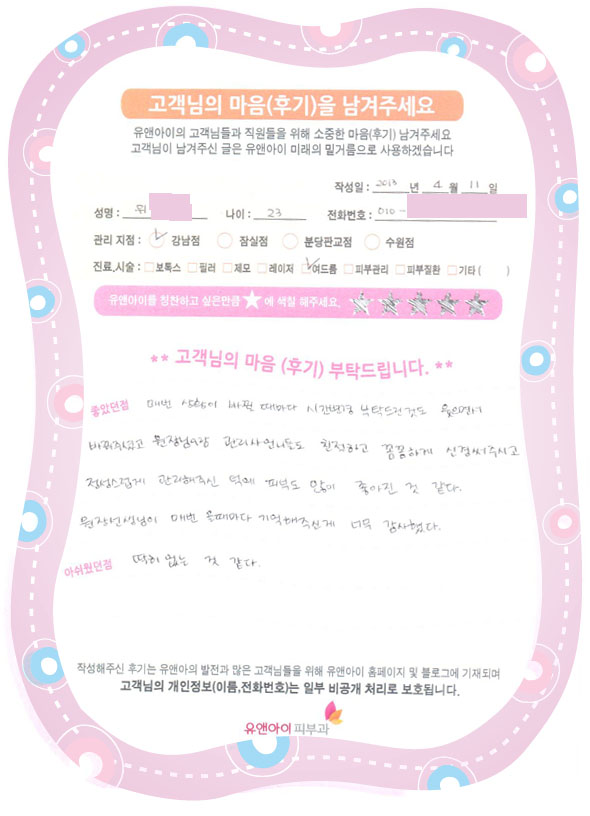 고객님의 마음(후기)을 남겨주세요
유앤아이의 고객님들과 직원들을 위해 소중한 마음(후기) 남겨주세요
고객님이 남겨주신 글은 유앤아이 미래의 밑거름으로 사용하겠습니다
작성일 : 2013 년 4 월 11 일
성명 : 위 나이 : 23 전화번호 : 010 -
관리 지점 : 강남점 잠실점 분당판교점 수원점
진료,시술 : 보톡스 필러 제모 레이저 여드름 피부관리 피부질환 기타 ( )
유앤아이를 칭찬하고 싶은만큼 ★에 색칠 해주세요.
** 고객님의 마음 (후기) 부탁드립니다. **
좋았던점 매번 상황이 바뀔 때마다 시간변경 부탁드린것도 웃으면서
바꿔주셨고 원장님이랑 관리사언니들도 친절하고 꼼꼼하게 신경써주시고
정성스럽게 관리해주신 덕에 피부도 많이 좋아진 것 같다.
원장선생님이 매번 올때마다 기억해주신게 너무 감사했다.
아쉬웠던점 딱히 없는 것 같다.
작성해주신 후기는 유앤아의 발전과 많은 고객님들을 위해 유앤아이 홈페이지 및 블로그에 기재되며
고객님의 개인정보(이름,전화번호)는 일부 비공개 처리로 보호됩니다.
유앤아이 피부과